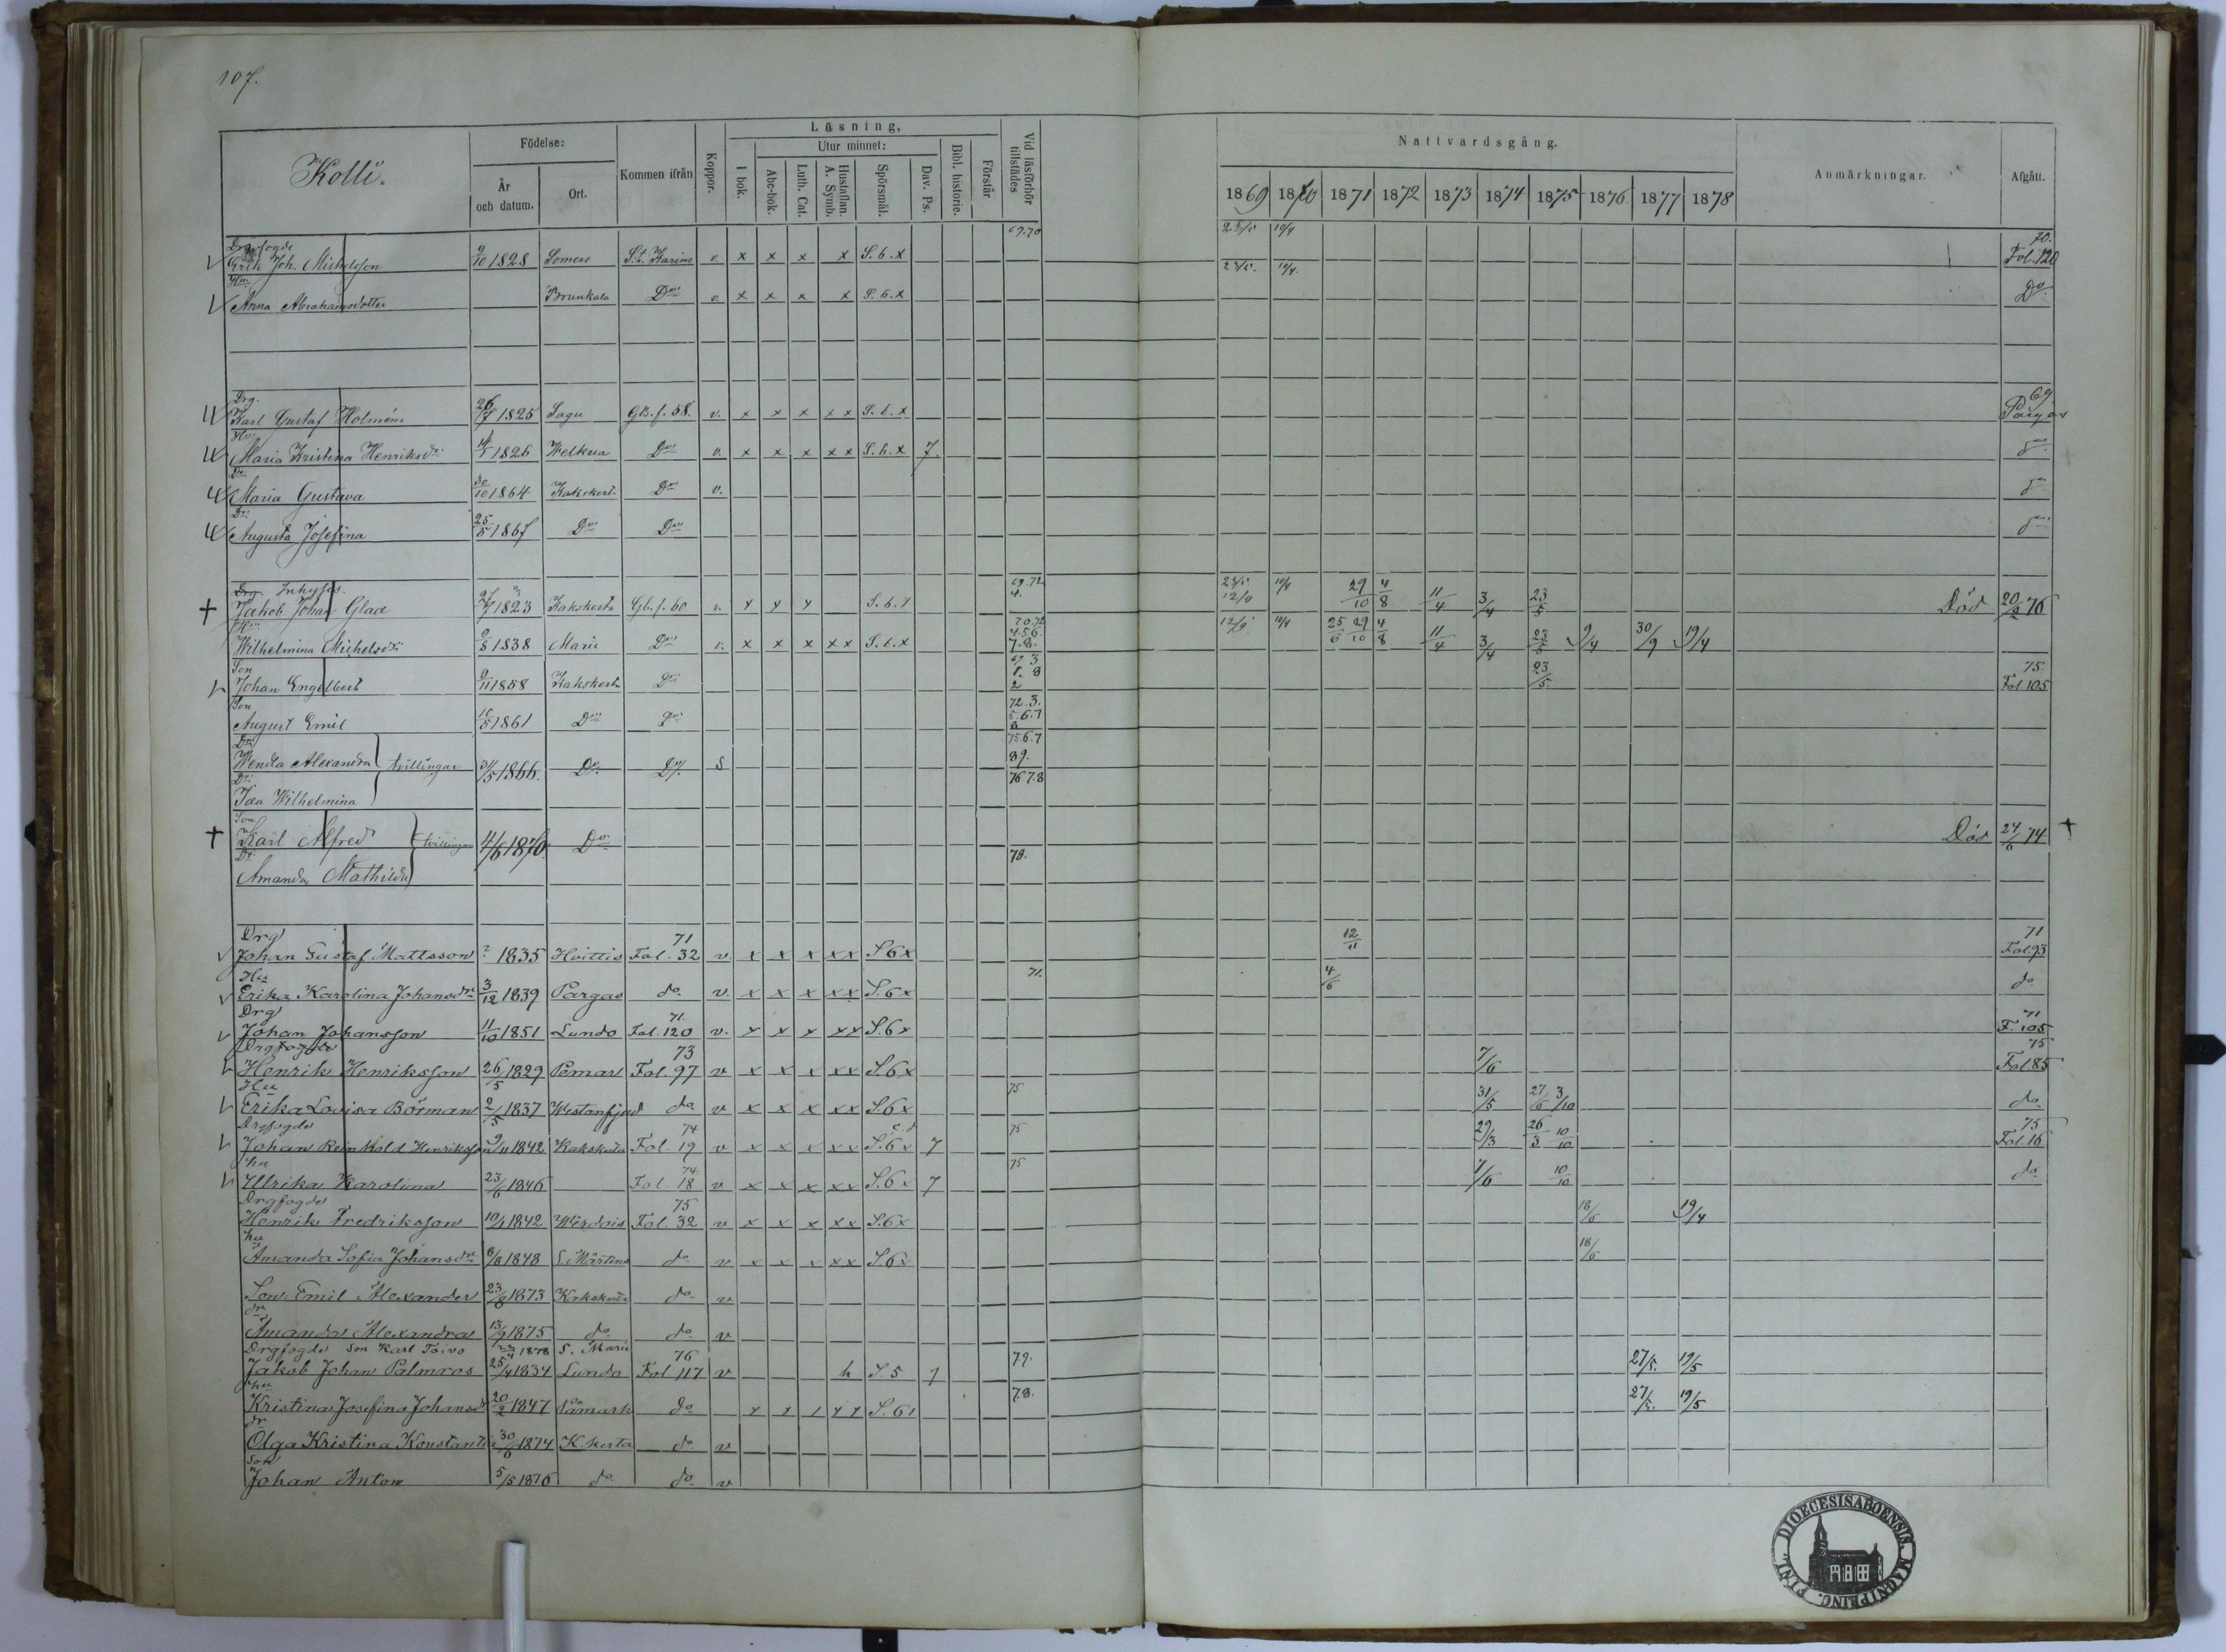 107.
Kolli.
Födelse:
År och datum.
Ort.
Kommen ifrån
Koppor.
Läsning,
I bok.
Utur minnet:
Abc-bok.
Luth. Cat.
Hustaflan. A. Symb.
Spörsmål.
Dav. Ps.
Bibl. historie.
Förstår
Vid läsförhör tillstädes
Nattvardsgång.
1869 1870 1871 1872 1873 1874 1875 1876 1877 1878
Anmärkningar.
Afgått.
Drg.fogde 69.70 70.
Erik Joh. Michelsson 9/10 1828 Somero S:t Karins v. x x x x S. 6. x Fol. 120
Hu
Anna Abrahamsdotter Brunkala Do v. x x x x S. 6. x Do
Drg. 69
Karl Gustaf Holmén 26/7 1825 Sagu Gb. f. 58. v. x x x x x S. 6. x Pargas
Hu
Maria Kristina Henriksdr 1826 Do v. x x x x x S. 6. x 7. do
Dr
Maria Gustava 30/10 1864 Kakskert. Do v. do
Dr
Augusta Josefina 25/5 1867 Do Do do
Drg Inhyses. 69.72
Jakob Johan Glad 1823 Kakskerta Gb. f. 60 v. x x x S. 6. 29/10 4/8 11/4 3/4 23/5 Död 76
Hu
Wilhelmina Michelsdr 9/8 1838 Marie Do v. x x x x x S. 6. x 25/6 29/10 4/8 11/4 3/4 23/5 9/4 30/9 19/4
Son
Johan Engelbert 9/11 1858 Kakskerta Do 23/5. 75 Fol. 105
Son 72.3.
August Emil 1861 Do Do 5.6.7
Dr 75.6.7
Wendla Alexandra tvillingar 31/5 1866. Do Do S
Dr 76 7.8
Ida Wilhelmina
Son
Karl Alfred tvillingar 4/6 1870 Do Död 24/6 74
Dr 78.
Amanda Mathilda
Drg 71 12/11 71
Johan Gustaf Mattsson ? 1835 Hvittis Fol. 32 v. x x x x x S 6 x Fol. 93
Hu 71. 4/6
Erika Karolina Johansdr 3/12 1839 Pargas do v. x x x x x S. 6 x do
Drg 71. 71
Johan Johansson 11/10 1851 Lundo Fol. 120 v. x x x x x S. 6 x F. 105
Drgfogde 73 75
Henrik Henriksson 26/5 1829 Pemar Fol. 97 v x x x x x S. 6 x 7/6 Fol 85
Hu 75
Erika Lovisa Börman 2/5 1837 Westanfjard do v x x x x x S. 6 x 31/5 27/6 3/10 do
Drgfogde 74 75 75
Johan Reinhold Henriksson 9/11 1842 Kakskerta Fol. 19 v x x x x x S. 6 x 7 29/3 26/3 10/10 Fol. 16
hu 74 75
Ulrika Karolina 23/6 1846 Fol. 18 v x x x x x S. 6 x 7 7/6 10/10 do
Drgfogde 75
Henrik Fredriksson 1842 Wirdois Fol. 32 v x x x x x S. 6 x 18/6 19/4
hu
Amanda Sofia Johansdr 8/8 1848 S. Mårtens do v x x x x x S. 6 x 18/6
Son Emil Alexander 23/8 1873 Kakskerta do v
dr
Amanda Alexandra 13/9 1875 do do v
Drgfogde Son Karl Toivo 1878 S. Marie 76 79.
Jakob Johan Palmros 25/4 1834 Lundo Fol 117 v h S. 5 27/5. 19/5
hu 78.
Kristina Josefina Johansdr 20/2 1847 Nämark do S. 6 27/5. 19/5
dr
Olga Kristina Konstantia 30/6 1874 K. kerta do v
son
Johan Anton 5/5 1876 do do v
DIOECESIS ABOENSIS MAGNI PRINC. FINL.